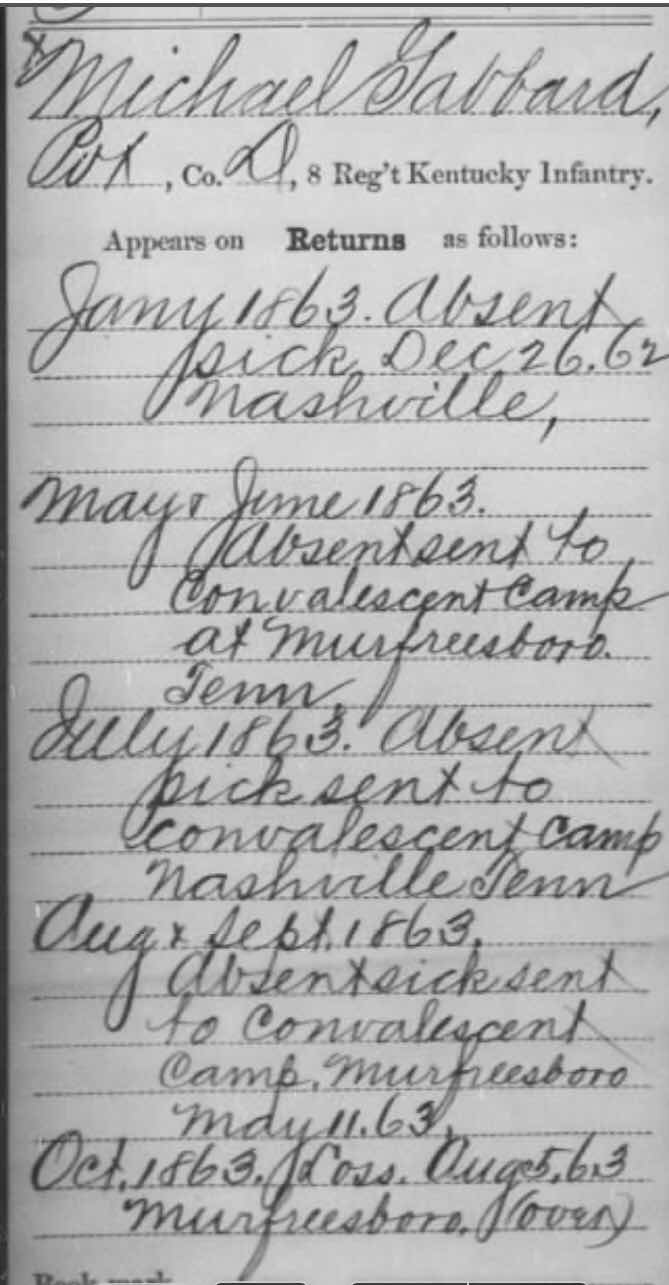 x Michael Gabbard,
Pvt, Co. D, 8 Reg't Kentucky Infantry.
Appears on Returns as follows:
Jany 1863. Absent
sick, Dec. 26.62
Nashville,
May & June 1863.
Absent sent to
Convalescent Camp
at Murfreesboro.
Tenn.
July 1863. Absent
sick sent to
convalescent Camp
Nashville Tenn
Aug & Sept. 1863.
Absent sick sent
to Convalescent
Camp. Murfreesboro
May 11.63.
Oct. 1863. Loss. Aug 5.63
Murfreesboro. (over)
Book mark